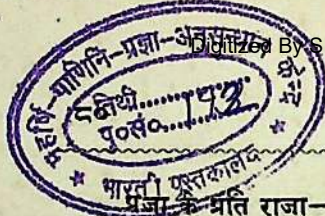 Digitized By S
महर्षि-पाणिनि-प्रज्ञा-अनुसन्धान केन्द्र
तिथी..............
पु०सं०...192....
भारती पुस्तकालय
प्रजा के प्रति राजा-